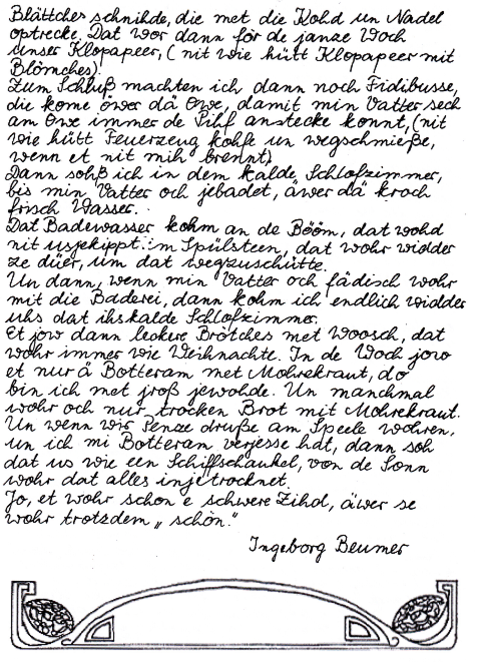 Blättches schnihde, die met die Kohd un Nadel
optrecke. Dat wor dann för de janze Woch
unser Klopapeer, (nit wie hütt Klopapeer mit
Blömches).
Zum Schluß machten ich dann noch Fidibusse,
die kome över dä Ovve, damit min Vatter sech
am Ovve immer de Pihf anstecke konnt, (nit
wie hütt Feuerzeug kohfe un wegschmieße,
wenn et nit mih brennt)
Dann sohß ich in dem kalde Schlofzimmer,
bis min Vatter och jebadet, äwer dä kroch
frisch Wasser.
Dat Badewasser kohm an de Bööm, dat wohd
nit usjekippt im Spülsteen, dat wohr widder
ze düer, um dat wegzuschütte.
Un dann, wenn min Vatter och fädisch wohr
mit die Baderei, dann kohm ich endlich widder
uhs dat ihskalde Schlofzimmer.
Et jow dann leckere Brötches met Woosch, dat
wohr immer wie Weihnachte. In de Woch jow
et nur ä Botteram met Mohrekraut, do
bin ich met jroß jewohde. Un manchmal
wohr och nur trocken Brot mit Mohrekraut.
Un wenn wir Penze druße am Speele wohren,
un ich mi Botteram verjesse hat, dann soh
dat us wie een Schiffschaukel, von de Sonn
wohr dat alles injetrocknet.
Jo, et wohr schon e schwere Zihd, äwer se
wohr trotzdem „schön."
Ingeborg Beumer